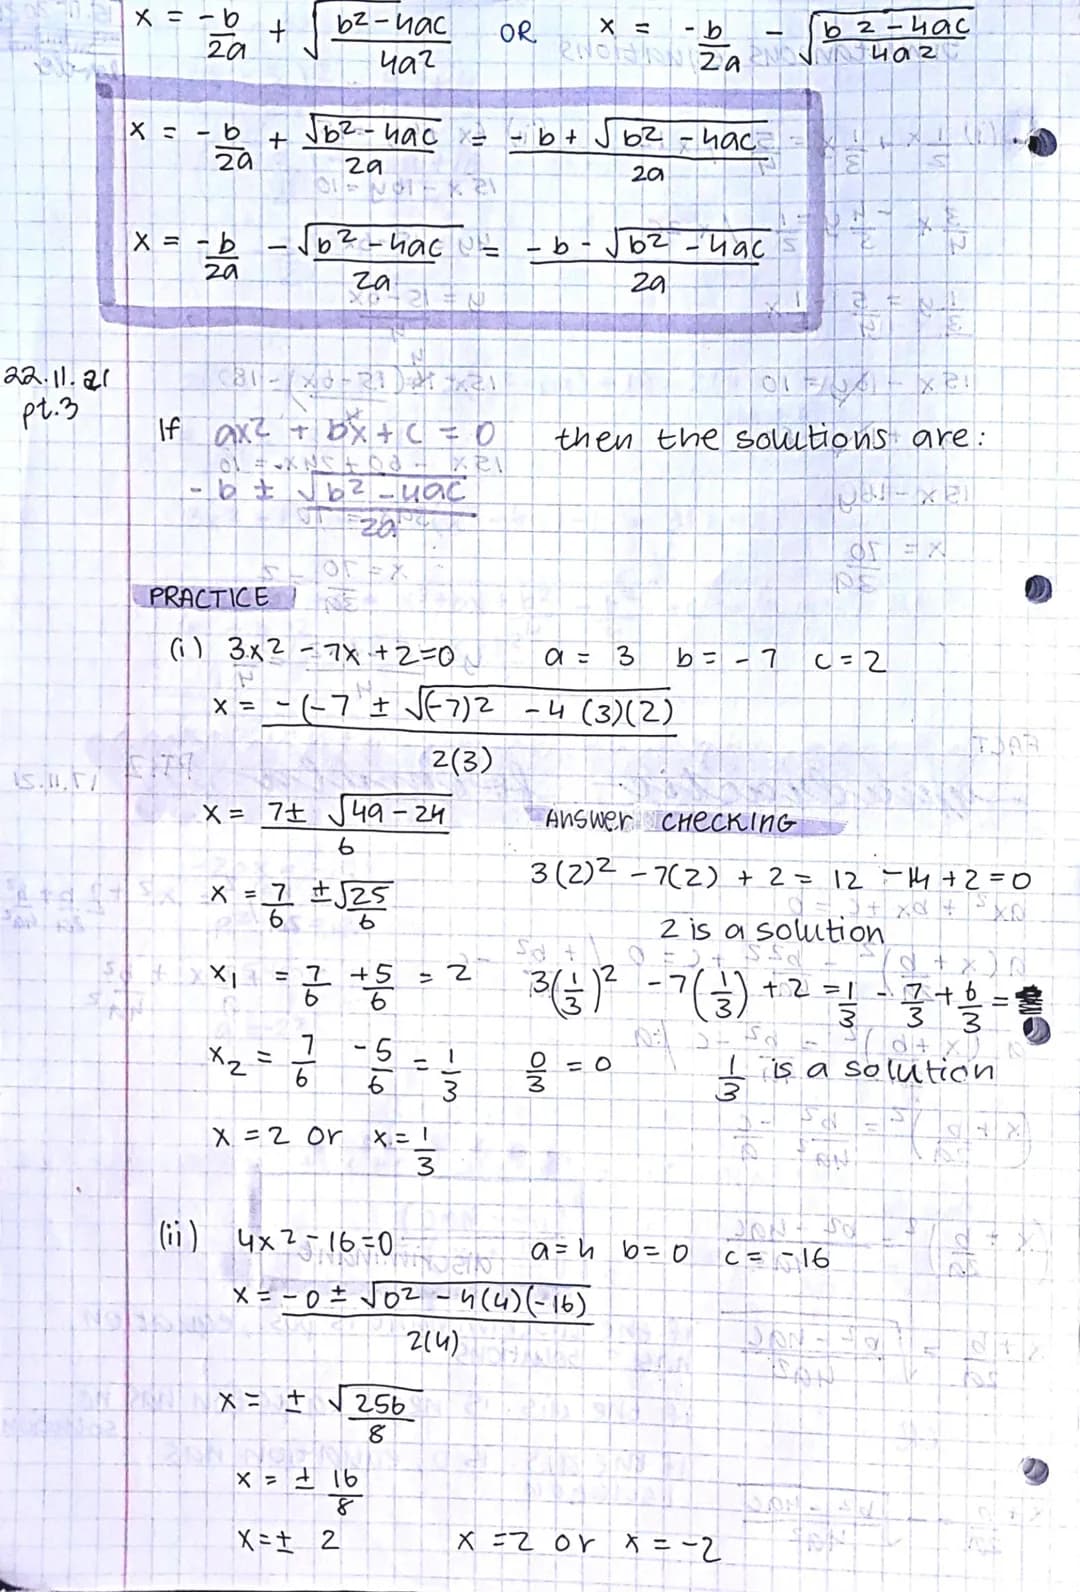 x = -b/2a + √(b²-4ac/4a²) OR x = -b/2a - √(b²-4ac/4a²)
x = -b/2a + √b²-4ac/2a = -b + √b²-4ac/2a
x = -b/2a - √b²-4ac/2a = -b - √b²-4ac/2a
22.11.21
pt.3
If ax² + bx + c = 0 then the solutions are:
-b ± √b²-4ac/2a
PRACTICE
(i) 3x² - 7x + 2=0 a = 3 b = -7 c = 2
x = -(-7 ± √(-7)² - 4 (3)(2)/2(3)
x = 7± √49-24/6
Answer CHECKING
3(2)² - 7(2) + 2 = 12 - 14 + 2 = 0
x = 7/6 ± √25/6
2 is a solution
x₁ = 7/6 + 5/6 = 2
3(1/3)² - 7(1/3) + 2 = 1/3 - 7/3 + 6/3 =
x₂ = 7/6 - 5/6 = 1/3
0/3 = 0 1/3 is a solution
x = 2 or x = 1/3
(ii) 4x² - 16=0 a=4 b=0 c = -16
x = -0 ± √0² - 4(4)(-16)/2(4)
x = ± √256/8
x = ± 16/8
x = ± 2 x = 2 or x = -2